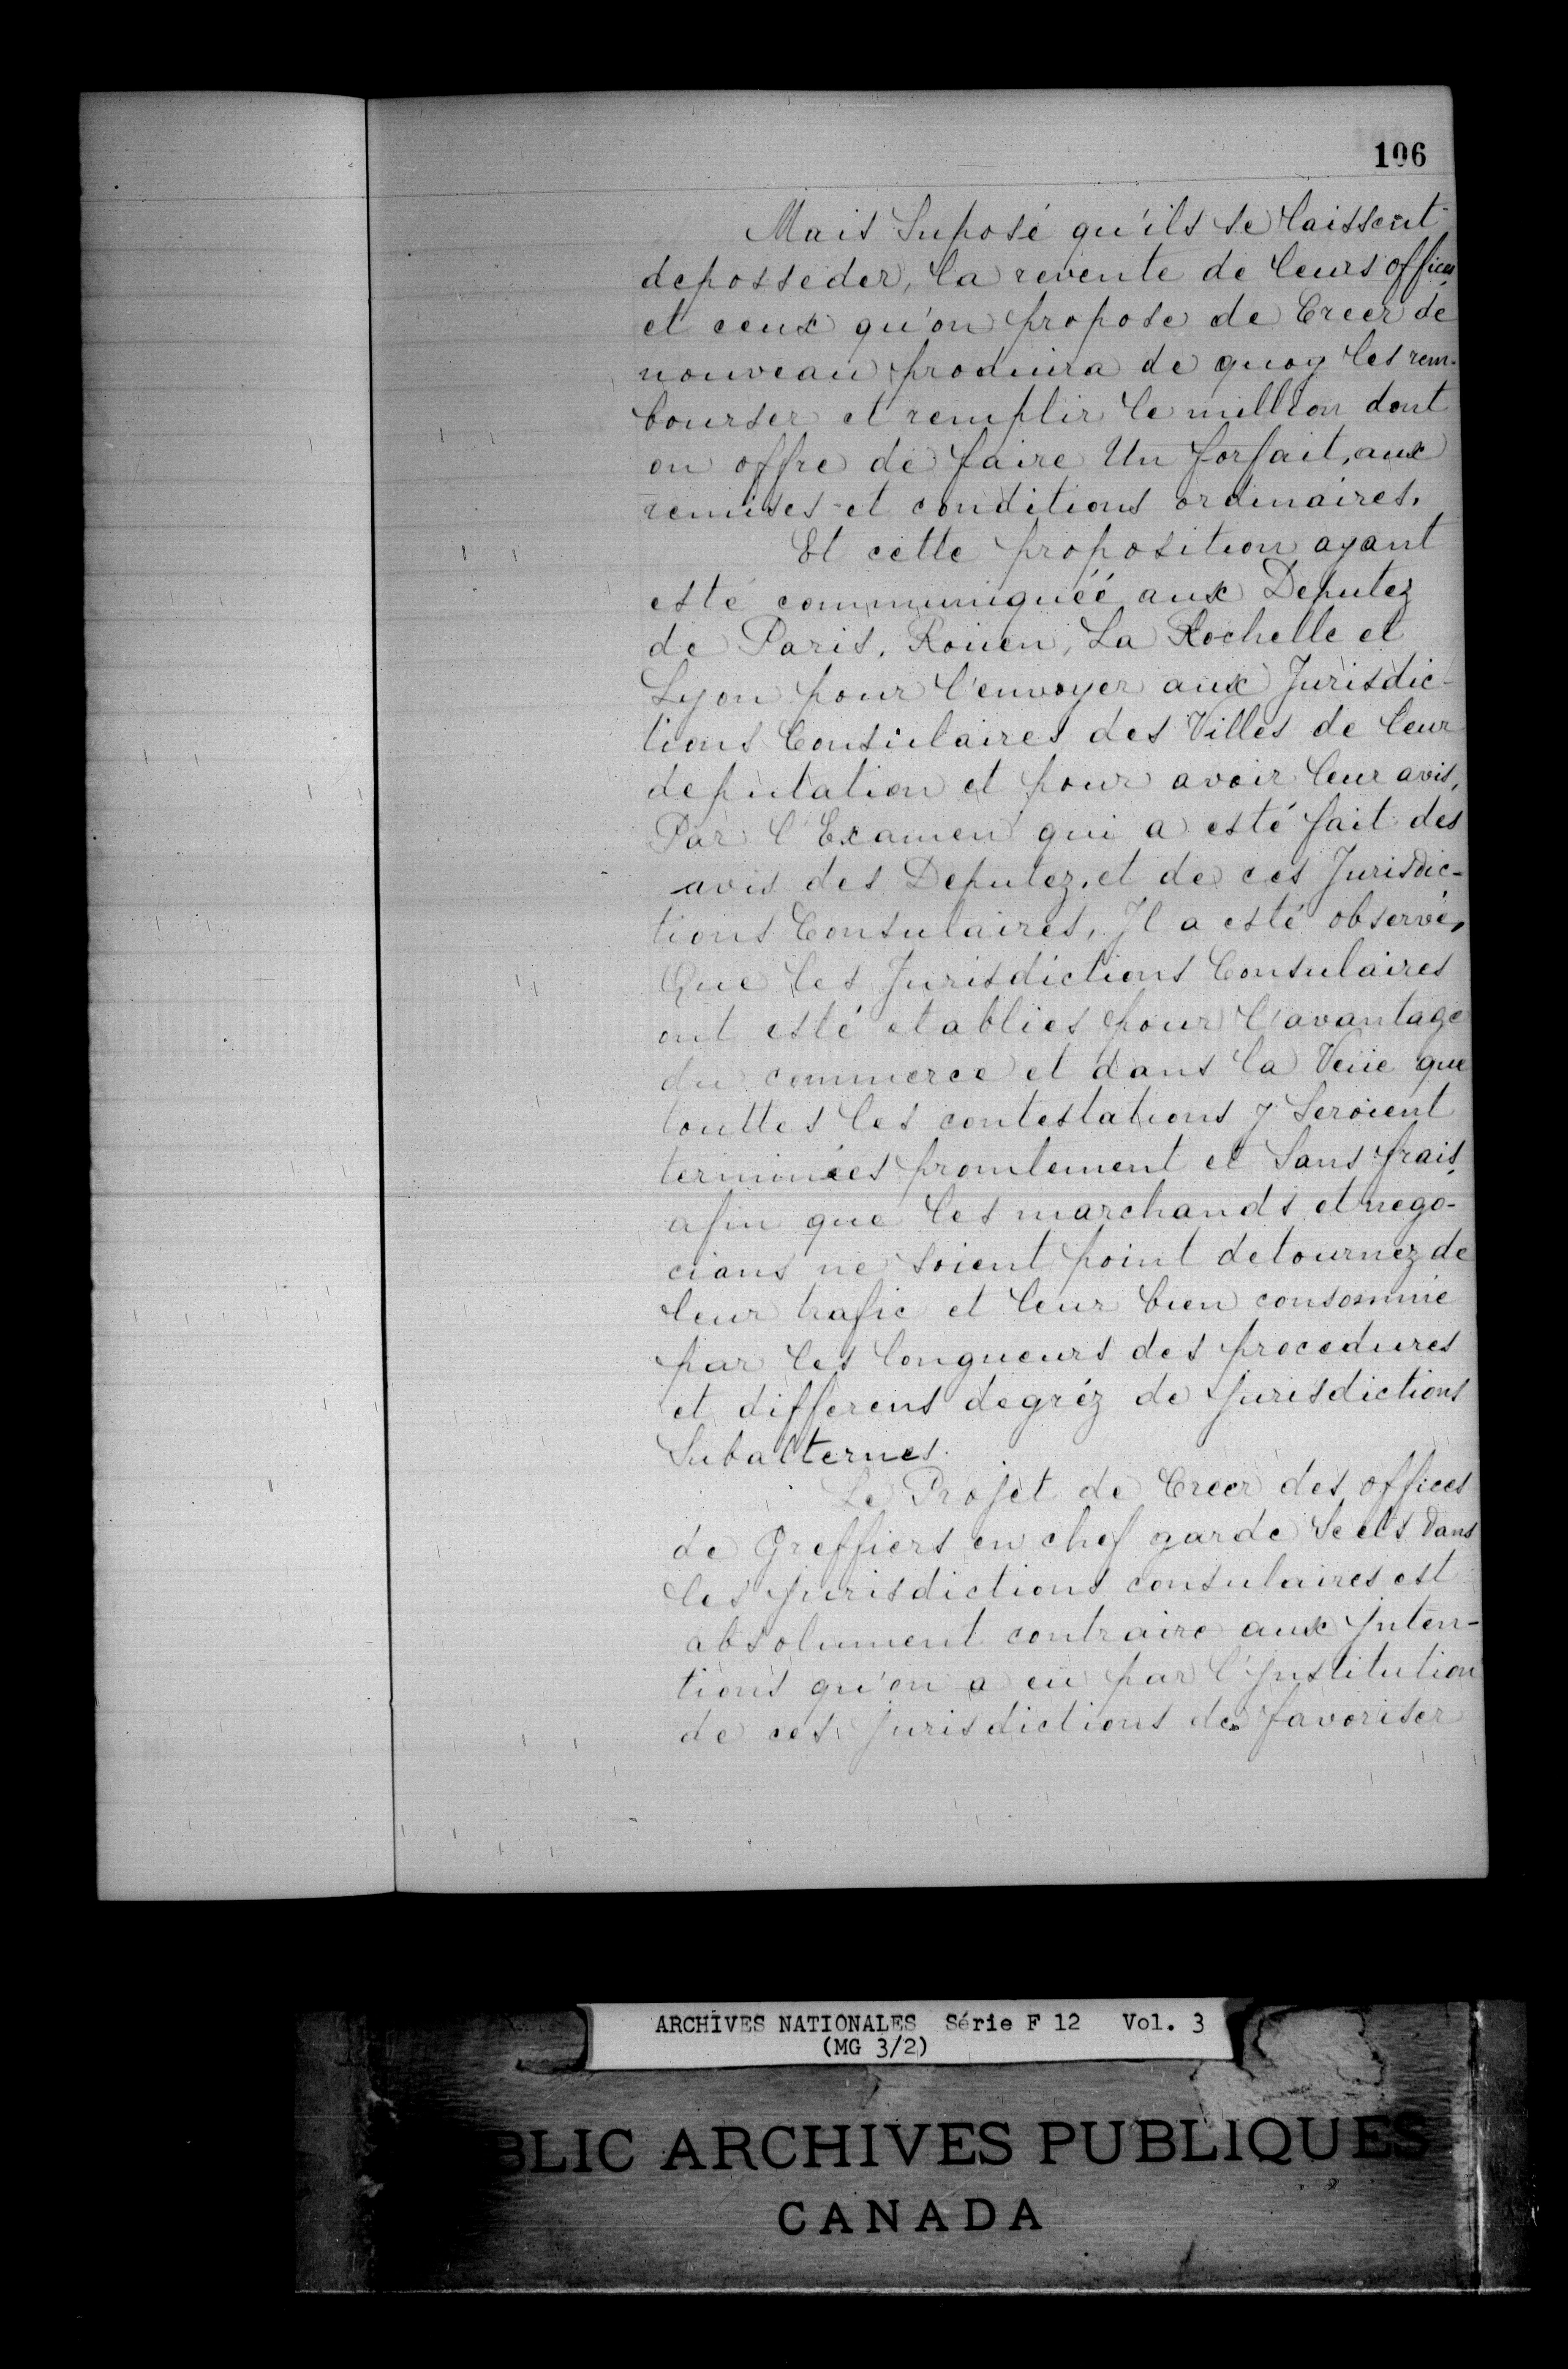 106
Mais Suposé qu'ils se laissent
deposseder, la revente de leurs offices
et ceux qu'on propose de Creer de
nouveau produira de quoy les rem-
bourser et remplir le million dont
on offre de faire Un forfait, aux
remises et conditions ordinaires.
Et cette proposition ayant
esté communiquéé aux Deputez
de Paris, Roüen, La Rochelle et
Lyon pour l'envoyer aux Jurisdic-
tions Consulaires des Villes de leur
deputation et pour avoir leur avis,
Par l'Examen qui a esté fait des
avis des Deputez, et de ces Jurisdic-
tions Consulaires, Jl a esté observé,
Que les Jurisdictions Consulaires
ont esté etablies pour l'avantage
du commerce et dans la Veüe que
touttes les contestations y Seroient
terminées promtement et Sans frais,
afin que les marchands et nego-
cians ne soient point detournez de
leur trafic et leur bien consommé
par les longueurs des procedures
et differens degréz de Jurisdictions
Subalternes.
Le Projet de Creer des offices
de Greffiers en chef garde Scels dans
les Jurisdictions consulaires est
absolument contraire aux Jnten-
tions qu'on a eü par l'Jnstitution
de ces Jurisdictions de favoriser
ARCHIVES NATIONALES Série F 12 Vol. 3
(MG 3/2)
BLIC ARCHIVES PUBLIQUES
CANADA